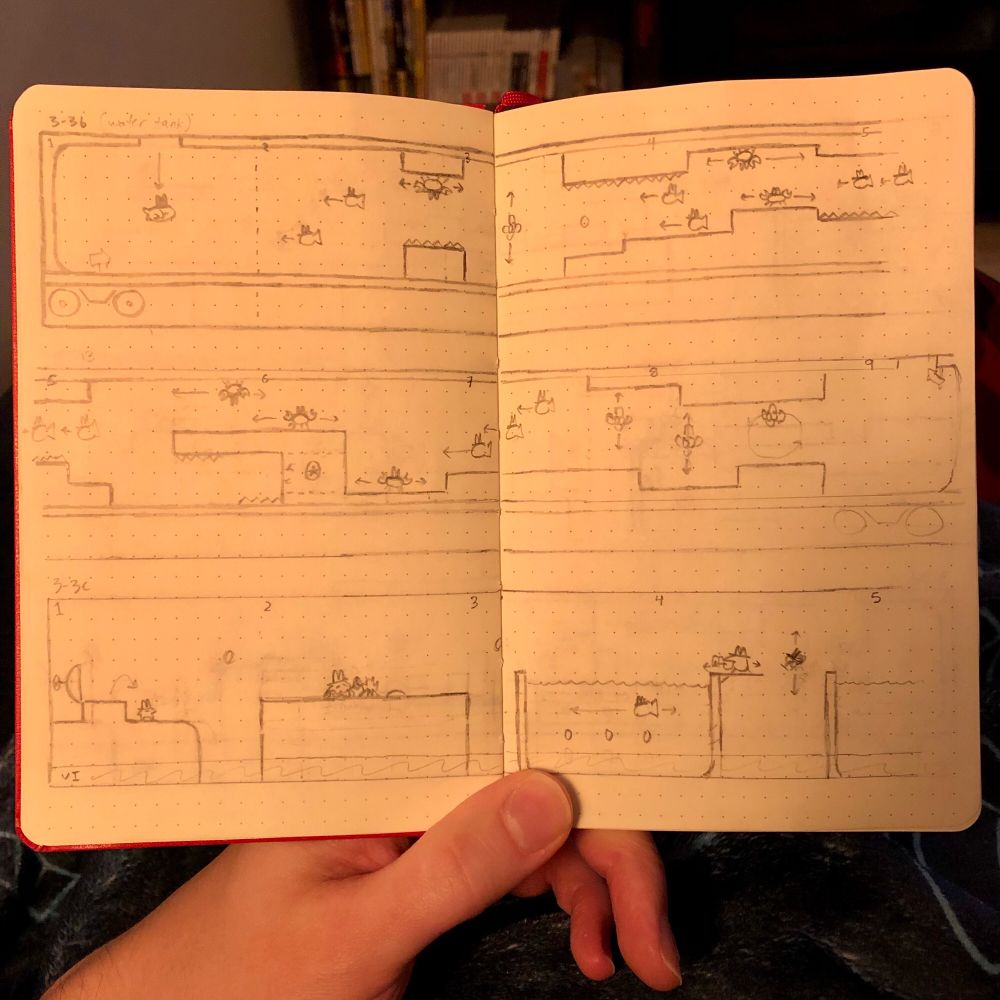 3-3b (water tank)
1 2 3 4 5
5 6 7 8 9
3-3c
1 2 3 4 5
VI